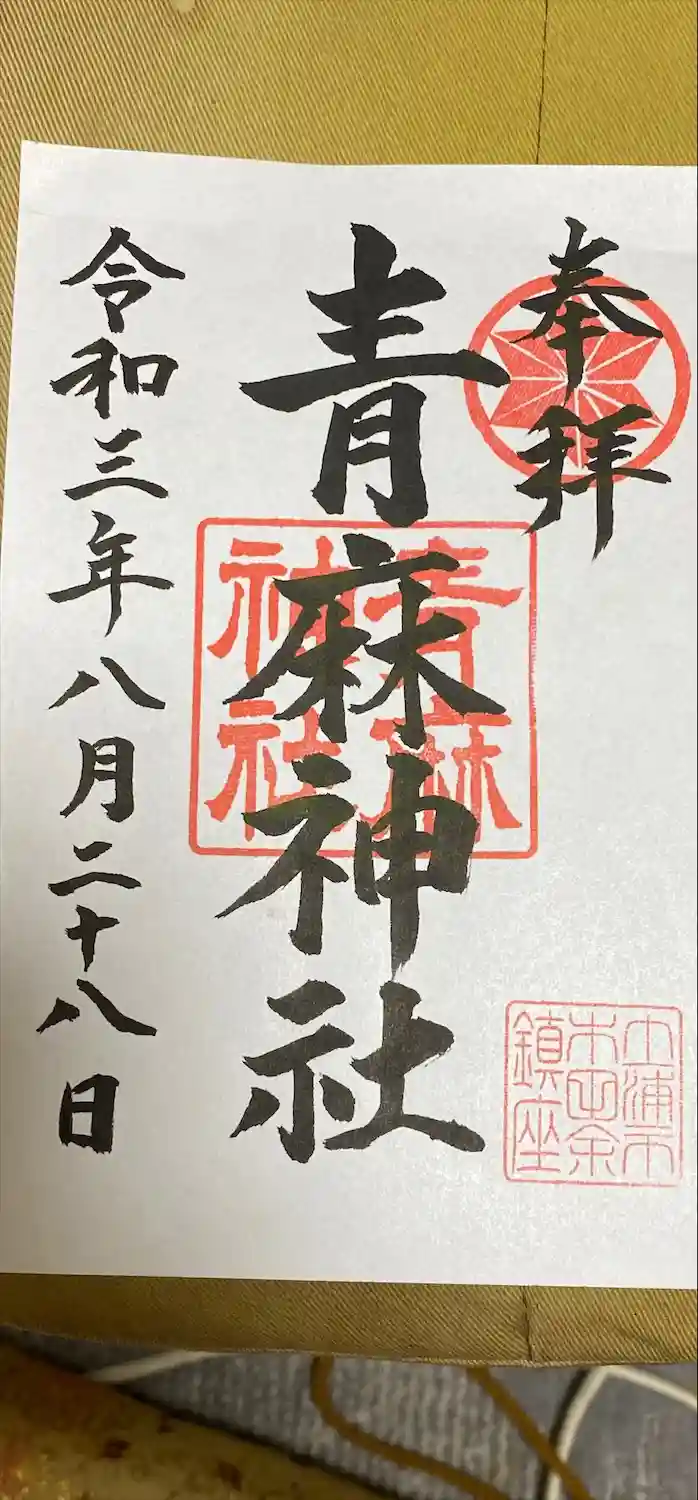 奉拝
土浦市
木田余
鎮座
青麻神社
青麻
神社
令和三年八月二十八日